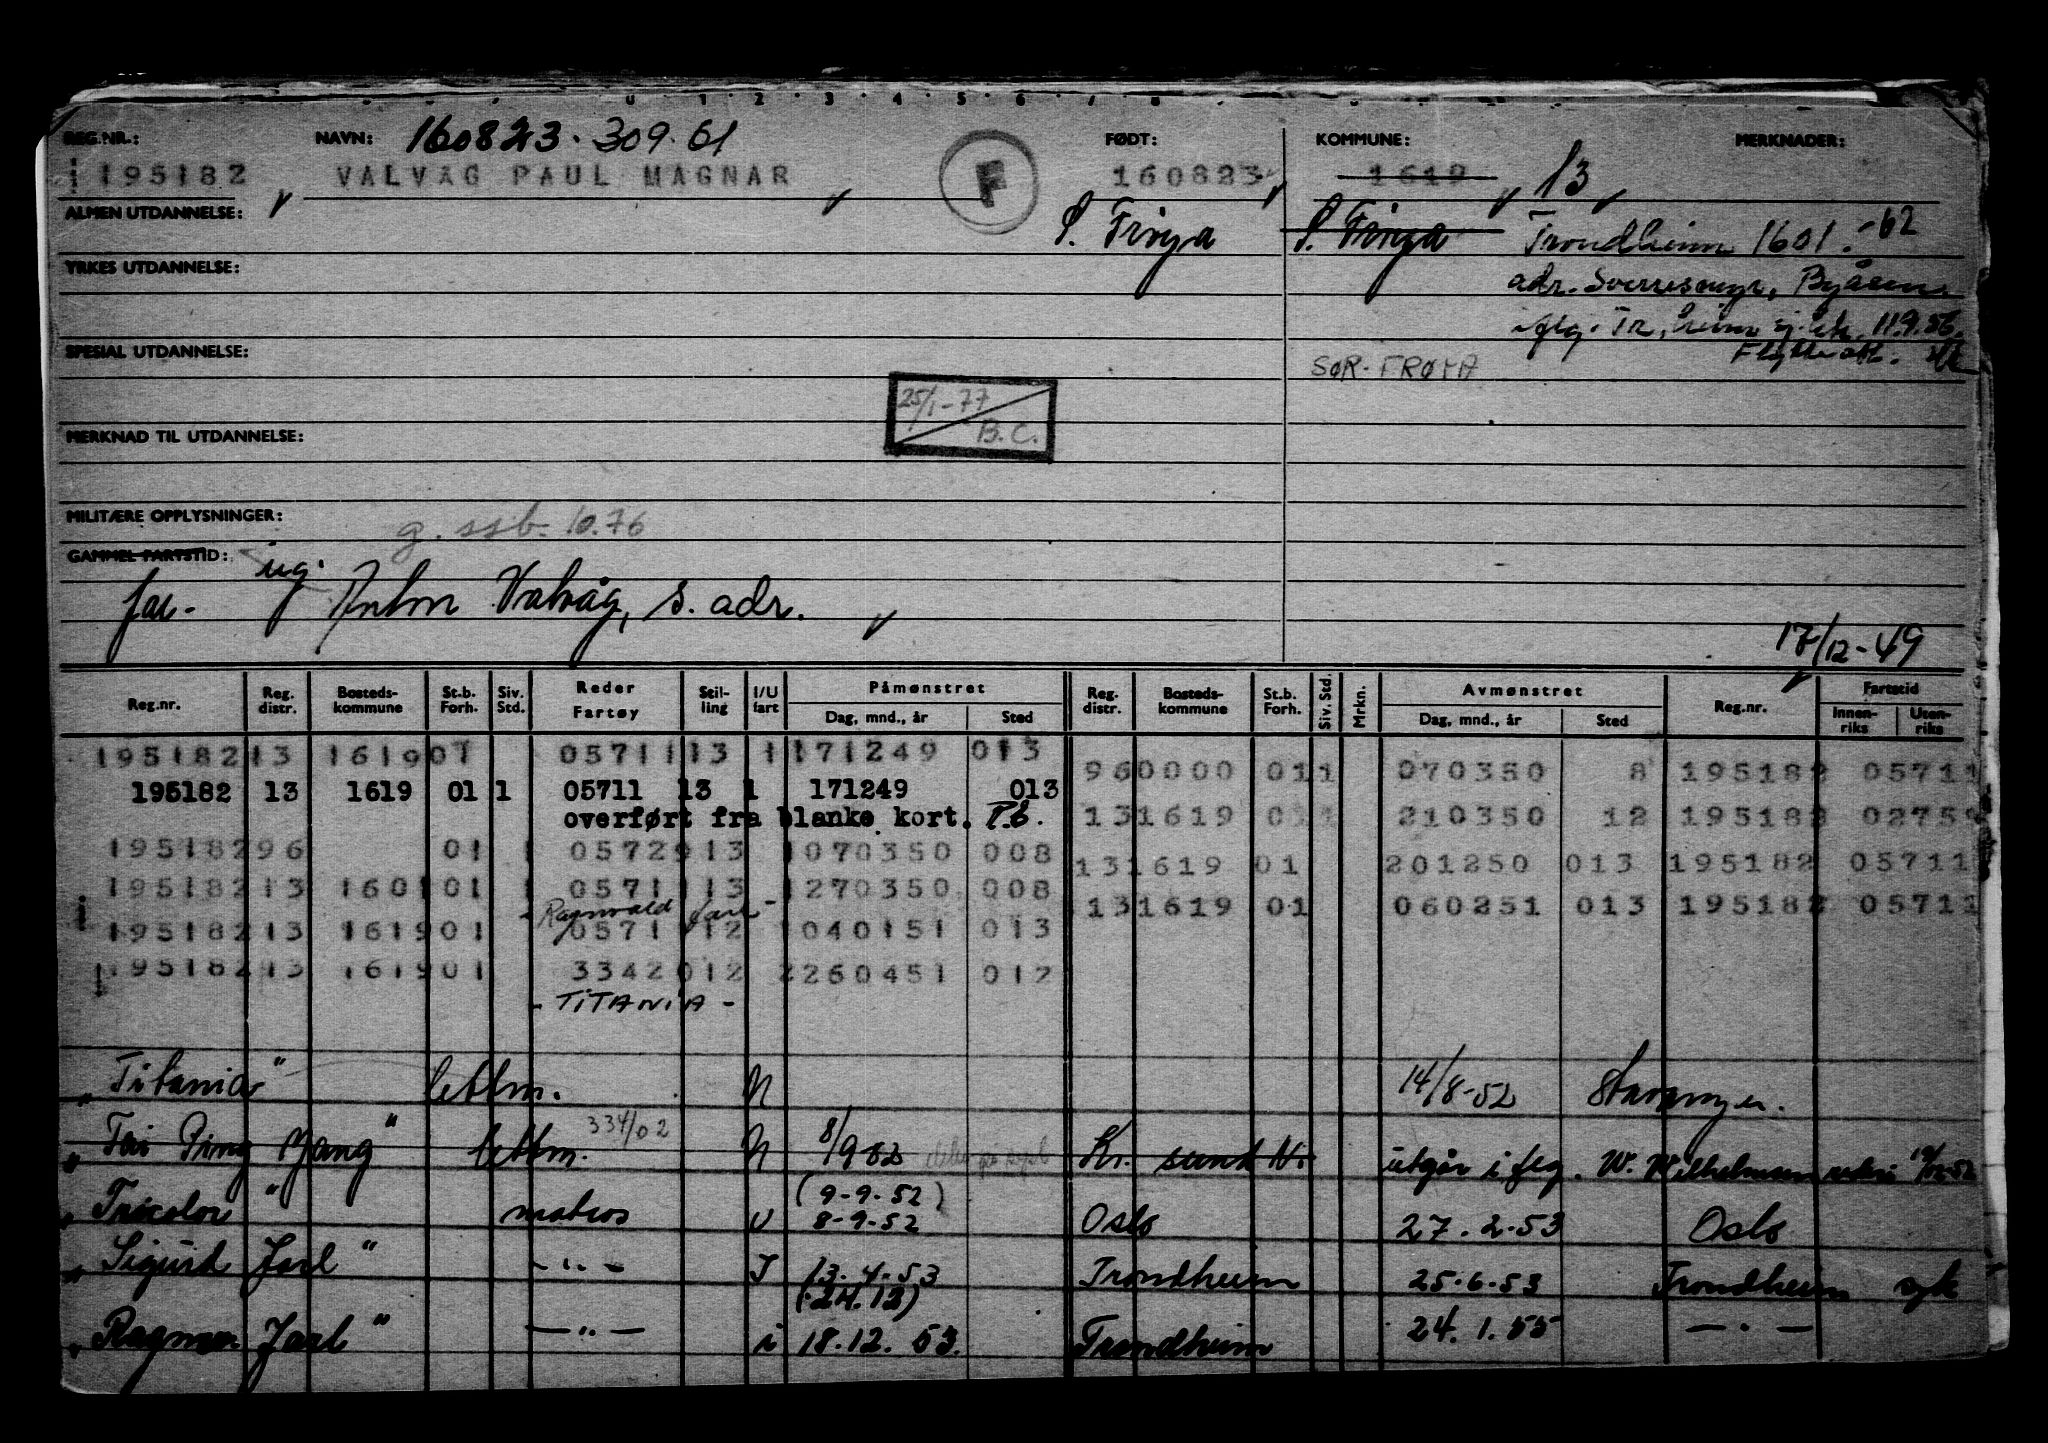 REG.NR.: NAVN: 160823.309.61 FØDT: KOMMUNE: MERKNADER:
195182 VALVAG PAUL MAGNAR F 160823 1619 13
ALMEN UTDANNELSE: S. Frøya S. Frøya Trondheim 1601.-62
YRKES UTDANNELSE: adr. Sverresmyr, Byåsen
11.9.56
SPESIAL UTDANNELSE: SØR-FRØYA
25/1-77
B.C.
MERKNAD TIL UTDANNELSE:
MILITÆRE OPPLYSNINGER: g. ssb. 10.76
GAMMEL FARTSTID: ug.
far- Anton Valvåg, s. adr.
17/12-49
Reg.nr. Reg. distr. Bosteds-kommune St.b. Forh. Siv. Std. Reder Fartøy Stil-ling I/U fart Påmønstret Dag, mnd., år Sted Reg. distr. Bosteds-kommune St.b. Forh. Siv. Std. Mrkn. Avmønstret Dag, mnd., år Sted Reg.nr. Fartstid Innen-riks Uten-riks
195182 13 1619 01 05711 13 1 171249 013
960000 011 070350 8 195182 05711
195182 13 1619 01 1 05711 13 1 171249 013
overført fra blanke kort. P.E.
131619 011 210350 12 195182 0275
195182 96 01 1 05729 13 1 070350 008
131619 01 201250 013 195182 05711
195182 13 1601 01 1 05711 13 1 270350 008
131619 01 060251 013 195182 05711
- Ragnvald Jarl -
195182 13 1619 01 05711 12 1 040151 013
195182 13 1619 01 33420 12 2 260451 012
- TITANIA -
"Titania" lettm. U 14/8-52 Stavanger.
"Tai Ping Yang" lettm. 334/02 U 8/9 52 Kr. sund N. utgår i flg. W. Wilhelmsen
(9-9-52)
"Tricolor" matros U 8-9-52 Oslo 27.2.53 Oslo
"Sigurd Jarl" - " - I 13.4.53 Trondheim 25.6.53 Trondheim syk
(24.12)
"Ragnv. Jarl" - " - i 18.12.53. Trondheim 24.1.55 - " -